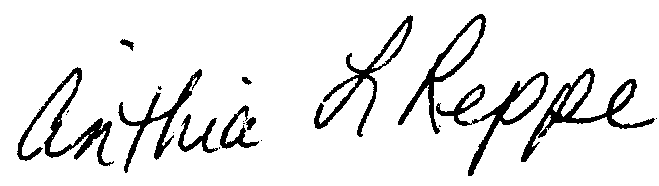 Anthia L Reppe